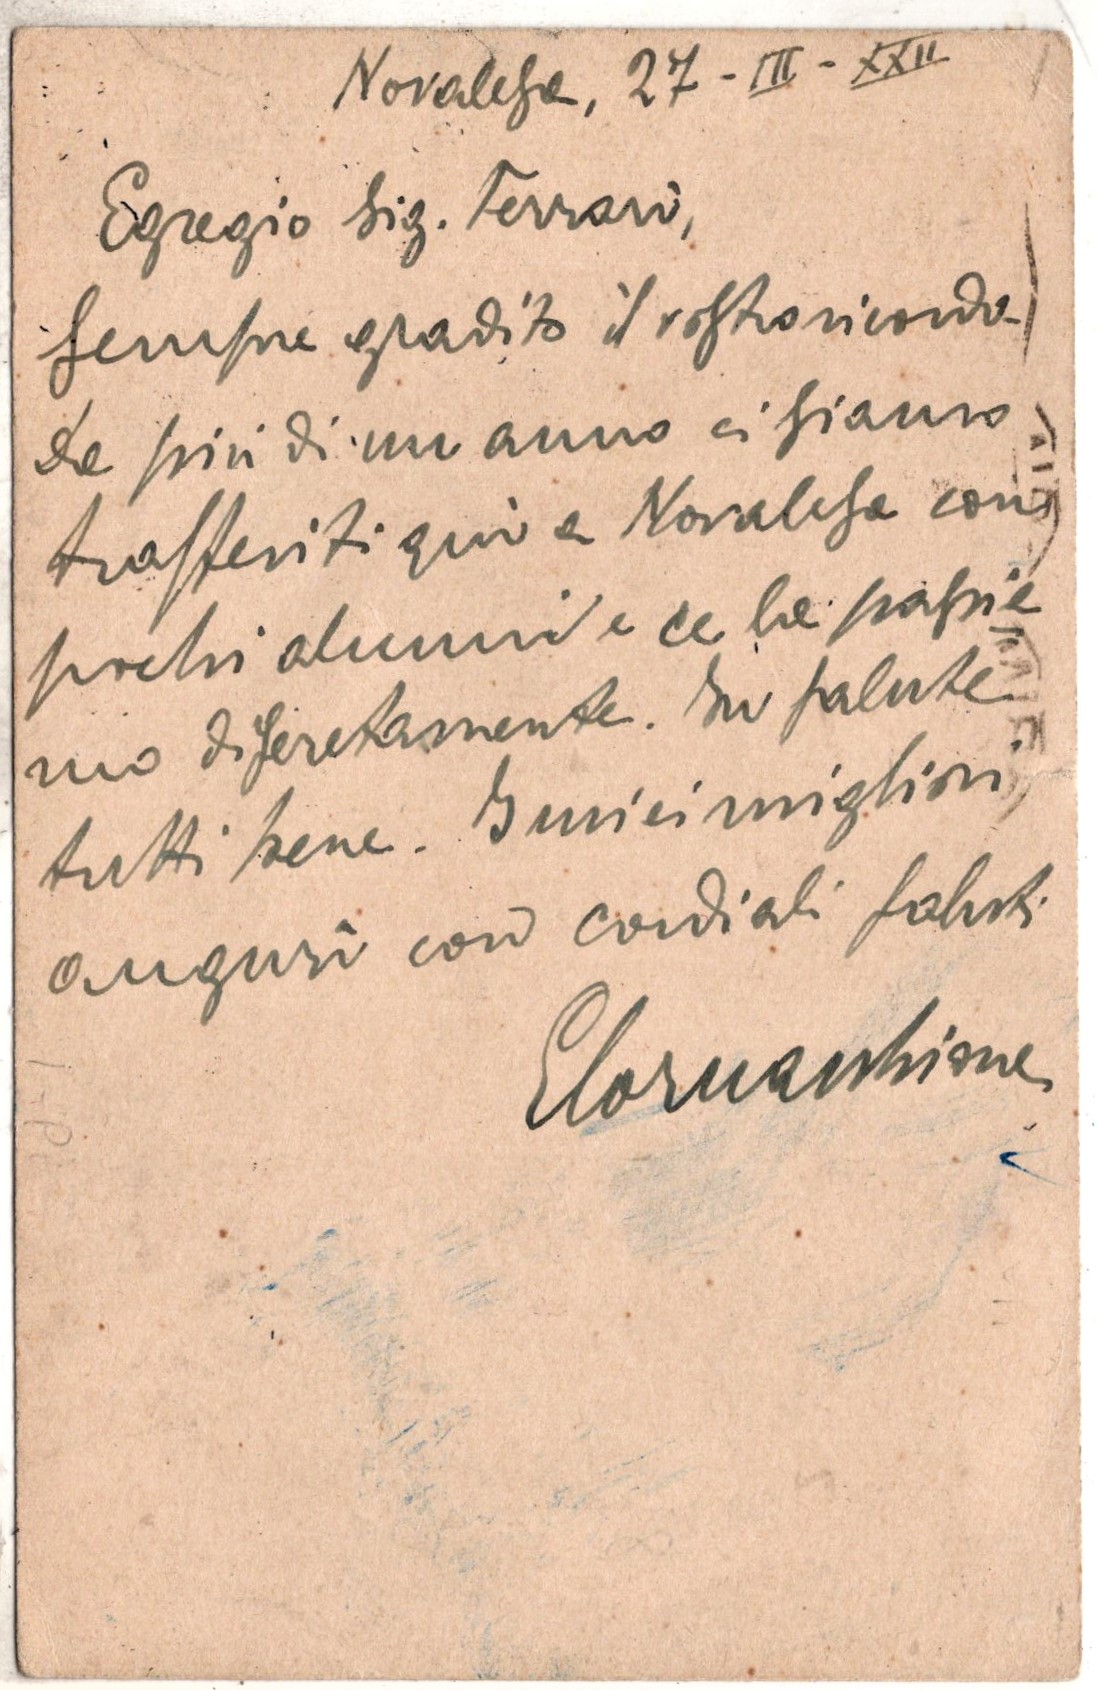 Novalesa, 27-III-XXII
Egregio Sig. Ferrari,
Sempre gradito il vostro ricordo.
Da più di un anno ci siamo
trasferiti qui a Novalesa con
pochi alunni e ce la passia
mo discretamente. In salute
tutti bene. I miei migliori
auguri con cordiali saluti